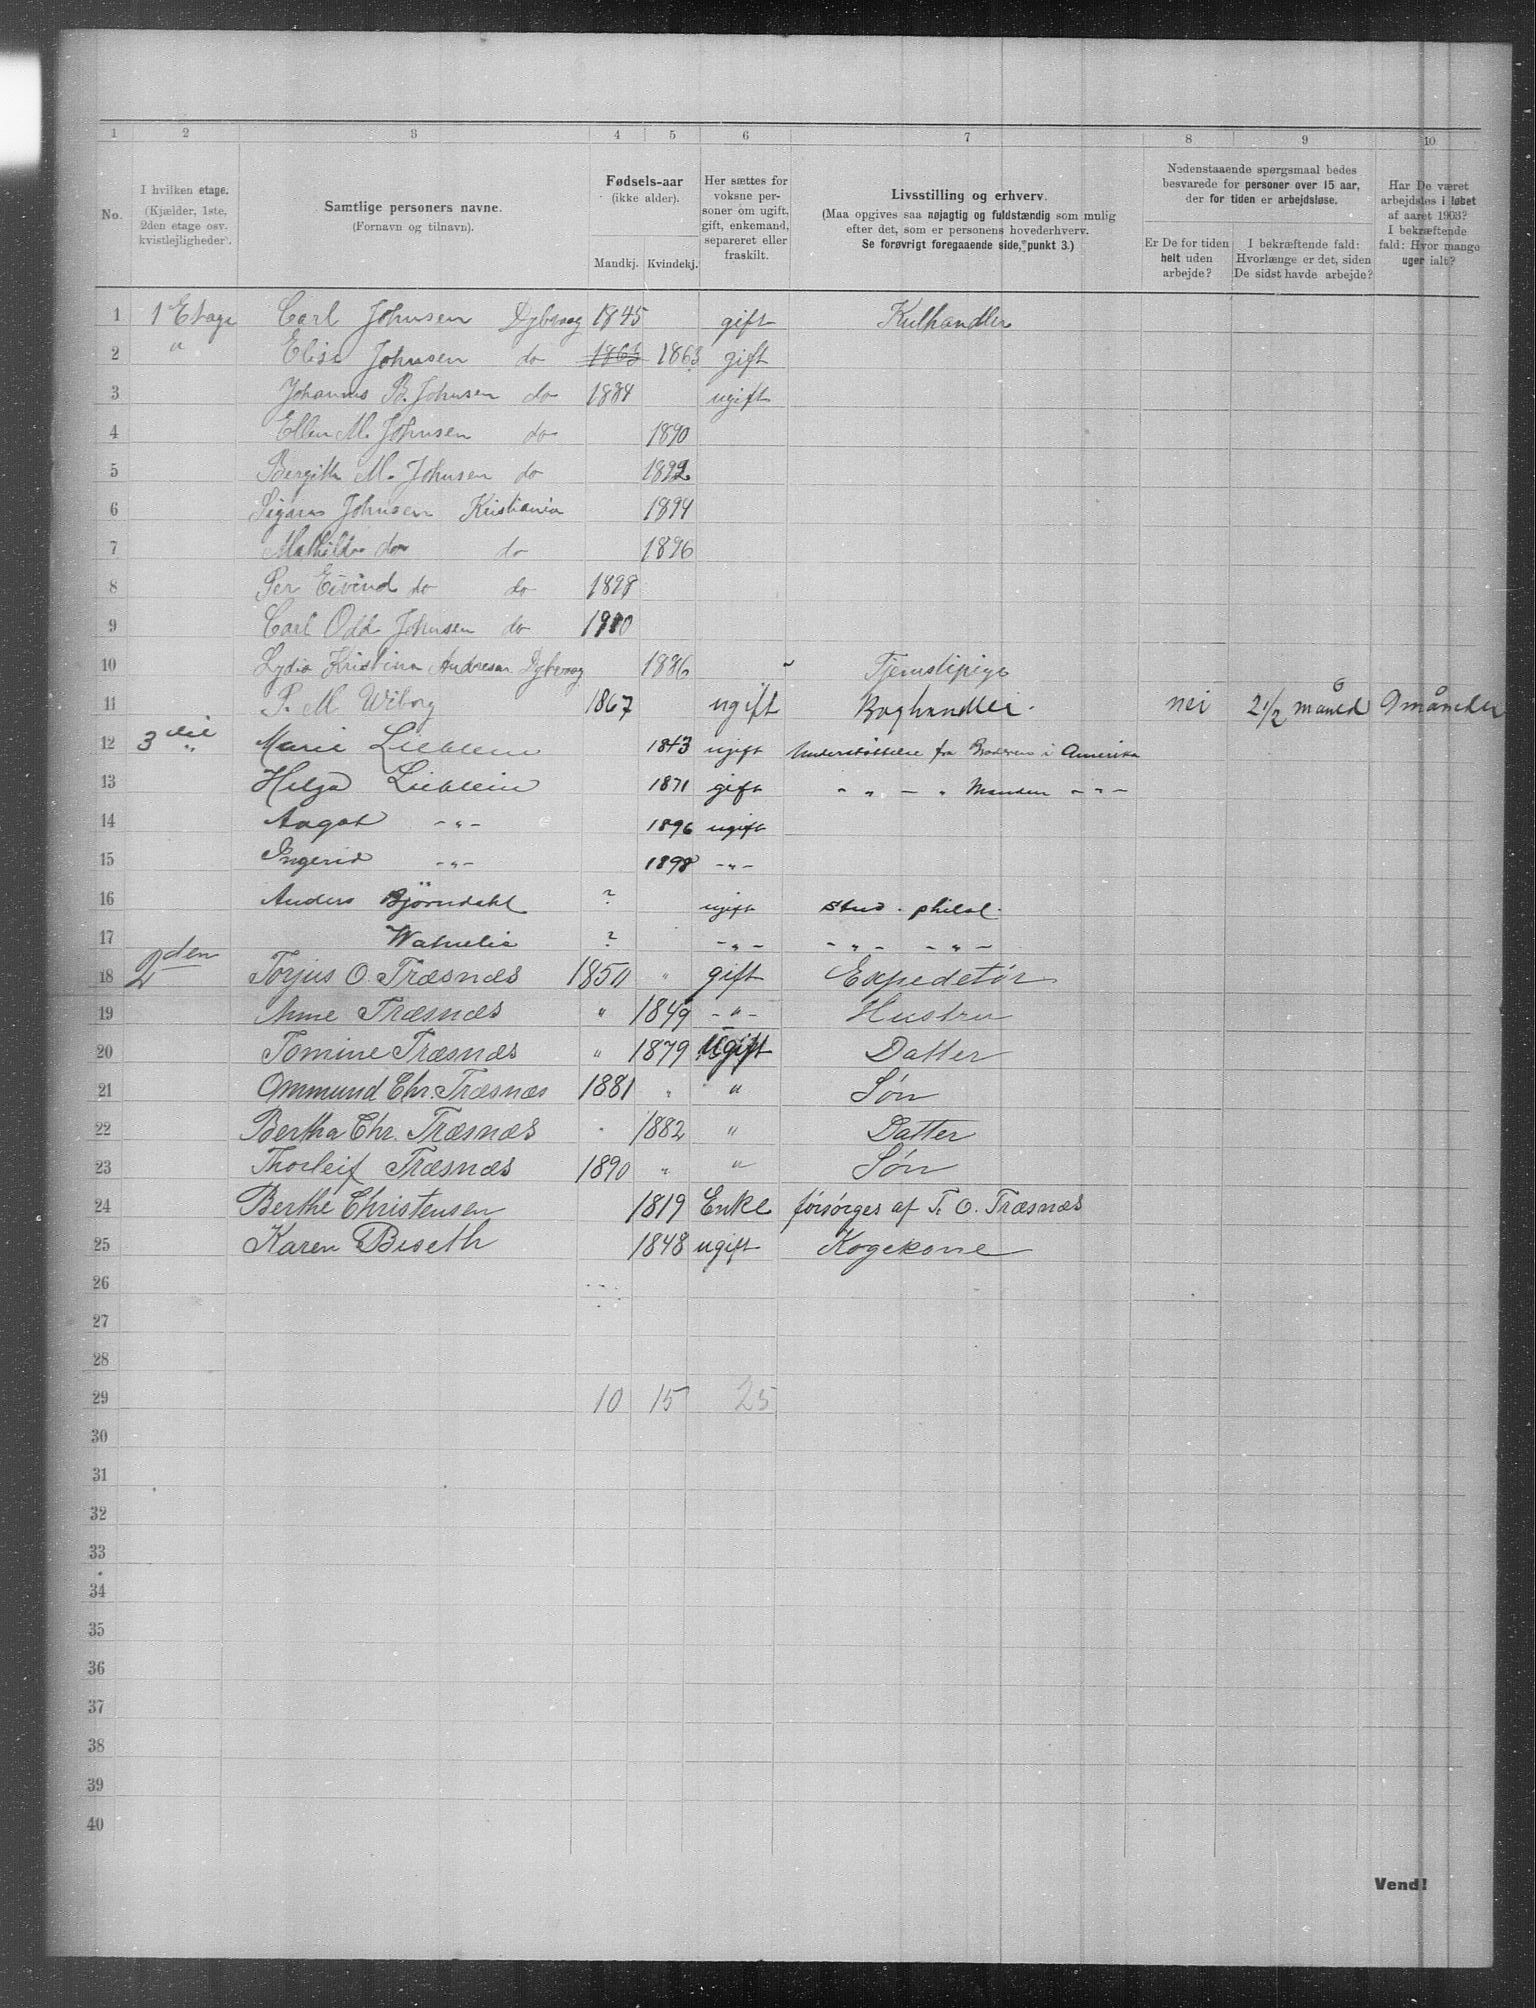 1 2 3 4 5 6 7 8 9 10
No.
I hvilken etage.
(Kjælder, 1ste,
2den etage osv.
kvistlejligheder).
Samtlige personers navne.
(Fornavn og tilnavn).
Fødsels-aar
(ikke alder).
Mandkj. Kvindekj.
Her sættes for
voksne per-
soner om ugift,
gift, enkemand,
separeret eller
fraskilt.
Livsstilling og erhverv.
(Maa opgives saa nøjagtig og fuldstændig som mulig
efter det, som er personens hovederhverv.
Se forøvrigt foregaaende side, punkt 3.)
Nedenstaaende spørgsmaal bedes
besvarede for personer over 15 aar,
der for tiden er arbejdsløse.
Er De for tiden
helt uden
arbejde?
I bekræftende fald:
Hvorlænge er det, siden
De sidst havde arbejde?
Har De været
arbejdsløs i løbet
af aaret 1903?
I bekræftende
fald: Hvor mange
uger ialt?
1 1 Etage Carl Johnsen Dybvaag 1845 gift Kulhandler
2 " Elise Johnsen do 1863 1863 gift
3 Johannes B. Johnsen do 1884 ugift
4 Ellen M. Johnsen do 1890
5 Bergith M. Johnsen do 1892
6 Johnsen Kristiania 1894
7 Mathilde do do 1896
8 Per Eivind do do 1898
9 Carl Odd Johnsen do 1900
10 Lydia Kristine Andresen Dybvaag 1886 " Tjenestepige
11 P. M. Wiborg 1867 ugift Boghandler. nei 2 1/2 måned 9 måneder
12 3die " Marie Lieblein 1843 ugift Understøttelse fra Broderen i Amerika
13 Helga Lieblein 1871 gift - " - " Manden - " -
14 Aagot - " - 1896 ugift
15 Ingerid - " - 1898 - " -
16 Anders Bjørndahl ? ugift stud. philol.
17 ? - " - - " - - " -
18 2den Torjus O. Træsnæs 1850 " gift Expeditør
19 Anne Træsnæs " 1849 - " - Hustru
20 Tomine Træsnæs " 1879 Ugift Datter
21 Ommund Chr. Træsnæs 1881 " " Søn
22 Bertha Chr. Træsnæs " 1882 " Datter
23 Thorleif Træsnæs 1890 " " Søn
24 Berthe Christensen 1819 Enke forsørges af T. O. Træsnæs
25 Karen Biseth 1848 ugift Kogekone
26
27
28
29 10 15 25
30
31
32
33
34
35
36
37
38
39
40
Vend!